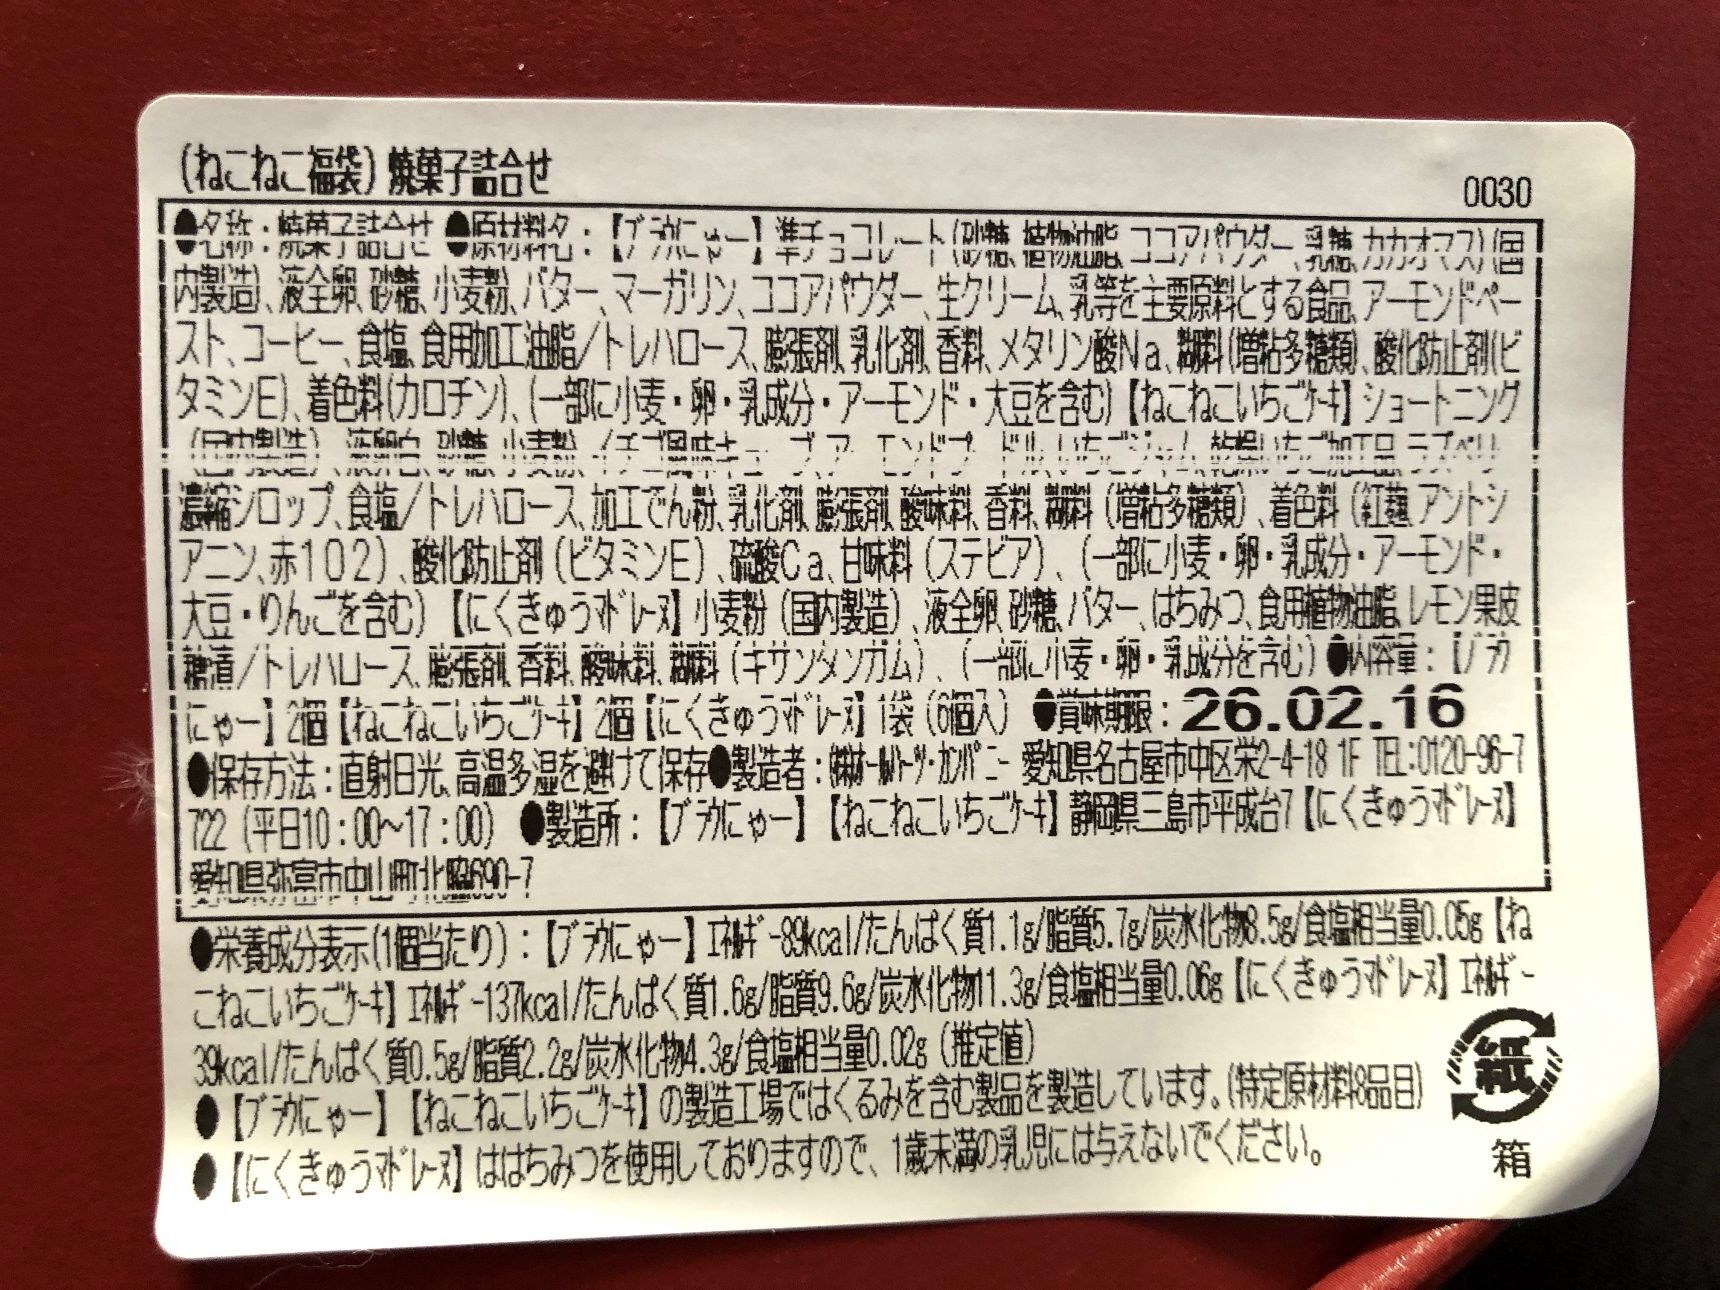 (ねこねこ福袋)焼菓子詰合せ
0030
●名称：焼菓子詰合せ ●原材料名：【ﾌﾞﾗｳにゃー】準チョコレート(砂糖、植物油脂、ココアパウダー、乳糖、カカオマス)(国
内製造)、液全卵、砂糖、小麦粉、バター、マーガリン、ココアパウダー、生クリーム、乳等を主要原料とする食品、アーモンドペー
スト、コーヒー、食塩、食用加工油脂／トレハロース、膨張剤、乳化剤、香料、メタリン酸Ｎａ、糊料(増粘多糖類)、酸化防止剤(ビ
タミンE)、着色料(カロチン)、(一部に小麦・卵・乳成分・アーモンド・大豆を含む)【ねこねこいちごｹｰｷ】ショートニング
(国内製造)、液卵白、砂糖、小麦粉、イチゴ風味キューブ、アーモンドプードル、いちごジャム、乾燥いちご加工品、ラズベリー
濃縮シロップ、食塩／トレハロース、加工でん粉、乳化剤、膨張剤、酸味料、香料、糊料（増粘多糖類）、着色料（紅麹、アントシ
アニン、赤１０２）、酸化防止剤（ビタミンE）、硫酸Ｃａ、甘味料（ステビア）、（一部に小麦・卵・乳成分・アーモンド・
大豆・りんごを含む）【にくきゅうﾏﾄﾞﾚｰﾇ】小麦粉（国内製造）、液全卵、砂糖、バター、はちみつ、食用植物油脂、レモン果皮
糖漬／トレハロース、膨張剤、香料、酸味料、糊料（キサンタンガム）、（一部に小麦・卵・乳成分を含む）●内容量：【ﾌﾞﾗｳ
にゃー】2個【ねこねこいちごｹｰｷ】2個【にくきゅうﾏﾄﾞﾚｰﾇ】1袋（6個入） ●賞味期限：26.02.16
●保存方法：直射日光、高温多湿を避けて保存●製造者：㈱ｵｰﾙﾊｰﾂ・ｶﾝﾊﾟﾆｰ 愛知県名古屋市中区栄2-4-18 1F TEL:0120-96-7
722（平日10：00～17：00） ●製造所：【ﾌﾞﾗｳにゃー】【ねこねこいちごｹｰｷ】静岡県三島市平成台7【にくきゅうﾏﾄﾞﾚｰﾇ】
愛知県弥富市中山町北脇690-7
●栄養成分表示(1個当たり)：【ﾌﾞﾗｳにゃー】ｴﾈﾙｷﾞｰ89kcal/たんぱく質1.1g/脂質5.7g/炭水化物8.5g/食塩相当量0.05g【ね
こねこいちごｹｰｷ】ｴﾈﾙｷﾞｰ137kcal/たんぱく質1.6g/脂質9.6g/炭水化物11.3g/食塩相当量0.06g【にくきゅうﾏﾄﾞﾚｰﾇ】ｴﾈﾙｷﾞｰ
39kcal/たんぱく質0.5g/脂質2.2g/炭水化物4.3g/食塩相当量0.02g（推定値）
●【ﾌﾞﾗｳにゃー】【ねこねこいちごｹｰｷ】の製造工場ではくるみを含む製品を製造しています。(特定原材料8品目)
●【にくきゅうﾏﾄﾞﾚｰﾇ】ははちみつを使用しておりますので、1歳未満の乳児には与えないでください。
紙
箱